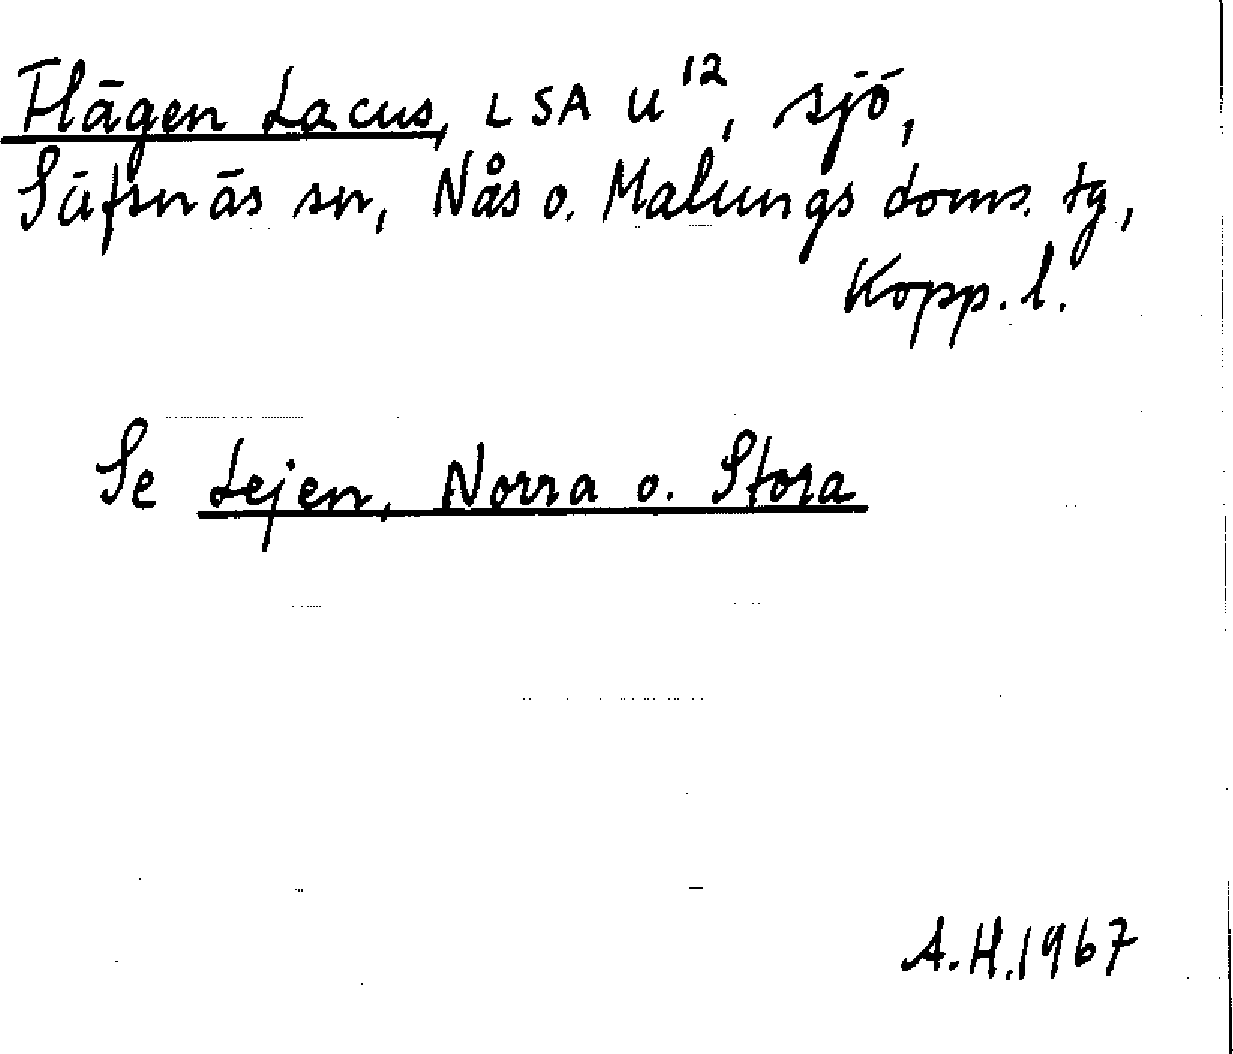 Flägen Lacus, LSA U¹², sjö,
Säfsnäs sn, Nås o. Malungs doms. tg,
Kopp. l.
Se Lejen, Norra o. Stora
A.H.1967